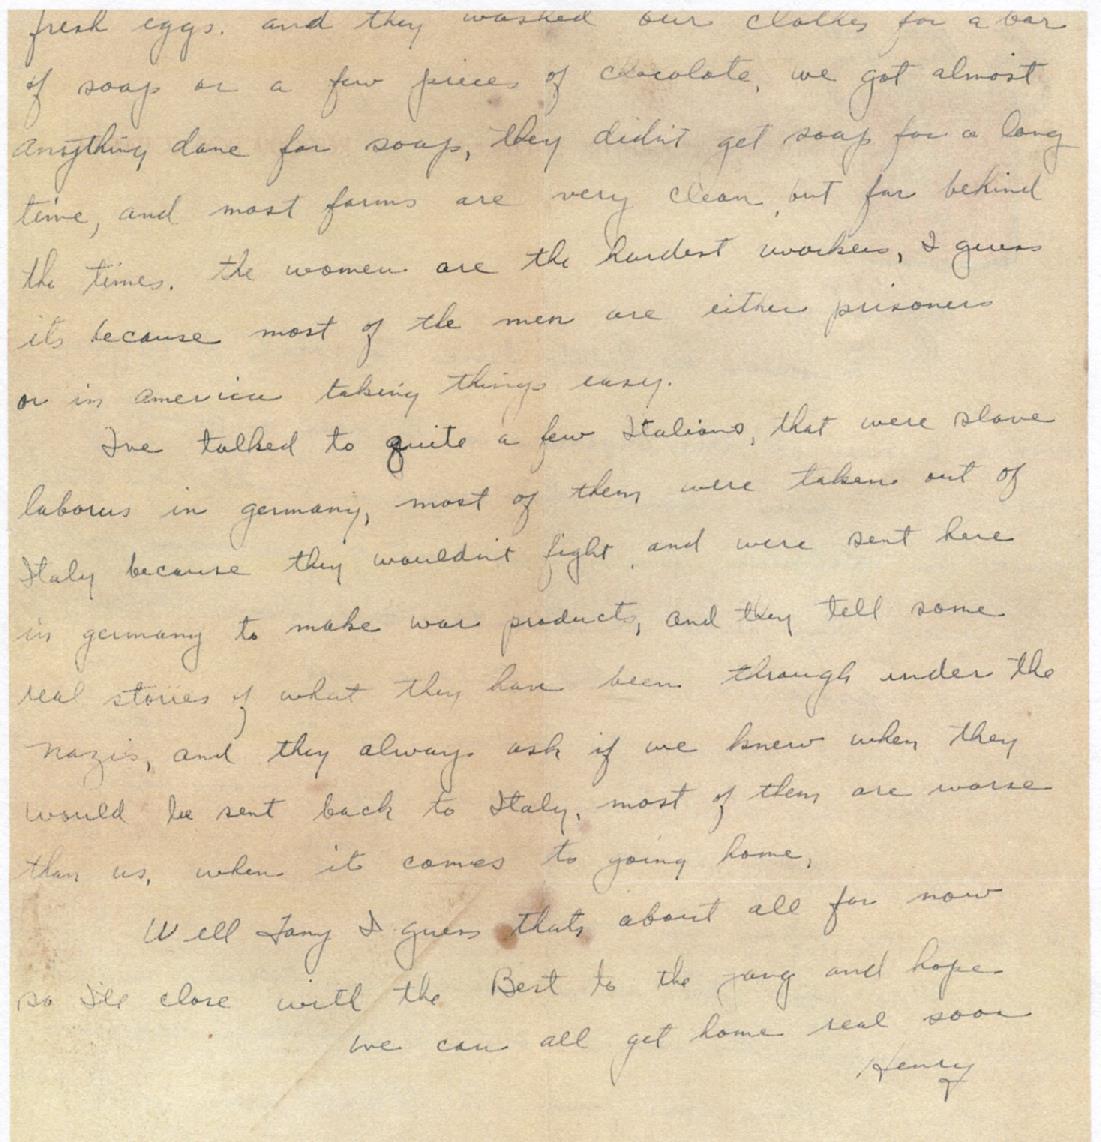 fresh eggs. and they washed our clothes for a bar
of soap or a few pieces of chocolate, we got almost
anything done for soap, they didn't get soap for a long
time, and most farms are very clean, but far behind
the times. the women are the hardest workers, I guess
its because most of the men are either prisoners
or in america taking things easy.
I've talked to quite a few Italians, that were slave
laborers in germany, most of them were taken out of
Italy because they wouldn't fight, and were sent here
in germany to make war products, and they tell some
real stories of what they have been through under the
nazis, and they always ask if we knew when they
would be sent back to Italy, most of them are worse
than us, when it comes to going home,
Well Tony I guess thats about all for now
so I'll close with the Best to the gang and hope
we can all get home real soon
Henry